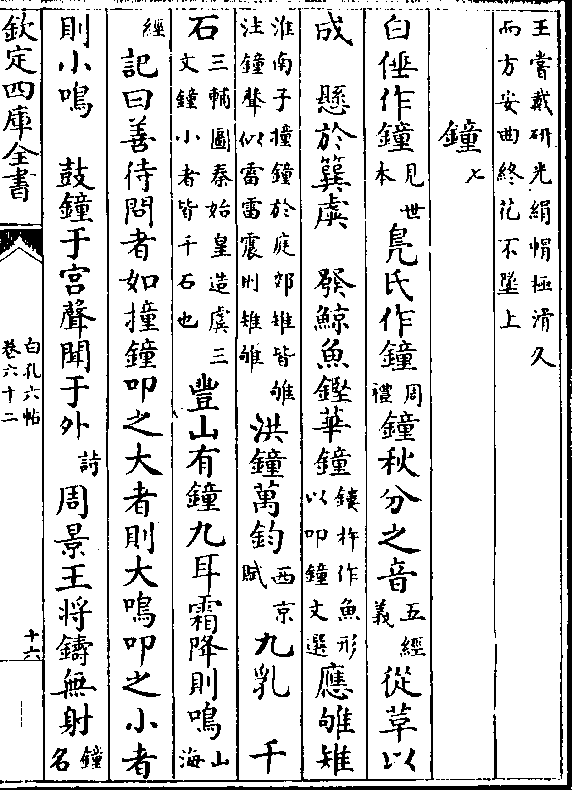 王嘗戴研光絹帽極滑久
而方安曲終花不墜上
鐘七
白倕作鐘見世本鳬氏作鐘周禮鐘秋分之音五經義從革以
成　懸於簨虡　發鯨魚鏗華鐘鐫杵作魚形以叩鐘文選應雊雉
淮南子撞鐘於庭郊雉皆雊注鐘聲似雷雷震則雉雊洪鐘萬鈞西京賦九乳　千
石三輔圖秦始皇造虡三文鐘小者皆千石也豐山有鐘九耳霜降則鳴山海
經記曰善待問者如撞鐘叩之大者則大鳴叩之小者
則小鳴　鼓鐘于宮聲聞于外詩周景王將鑄無射鐘名
欽定四庫全書
白孔六帖
卷六十二
十六